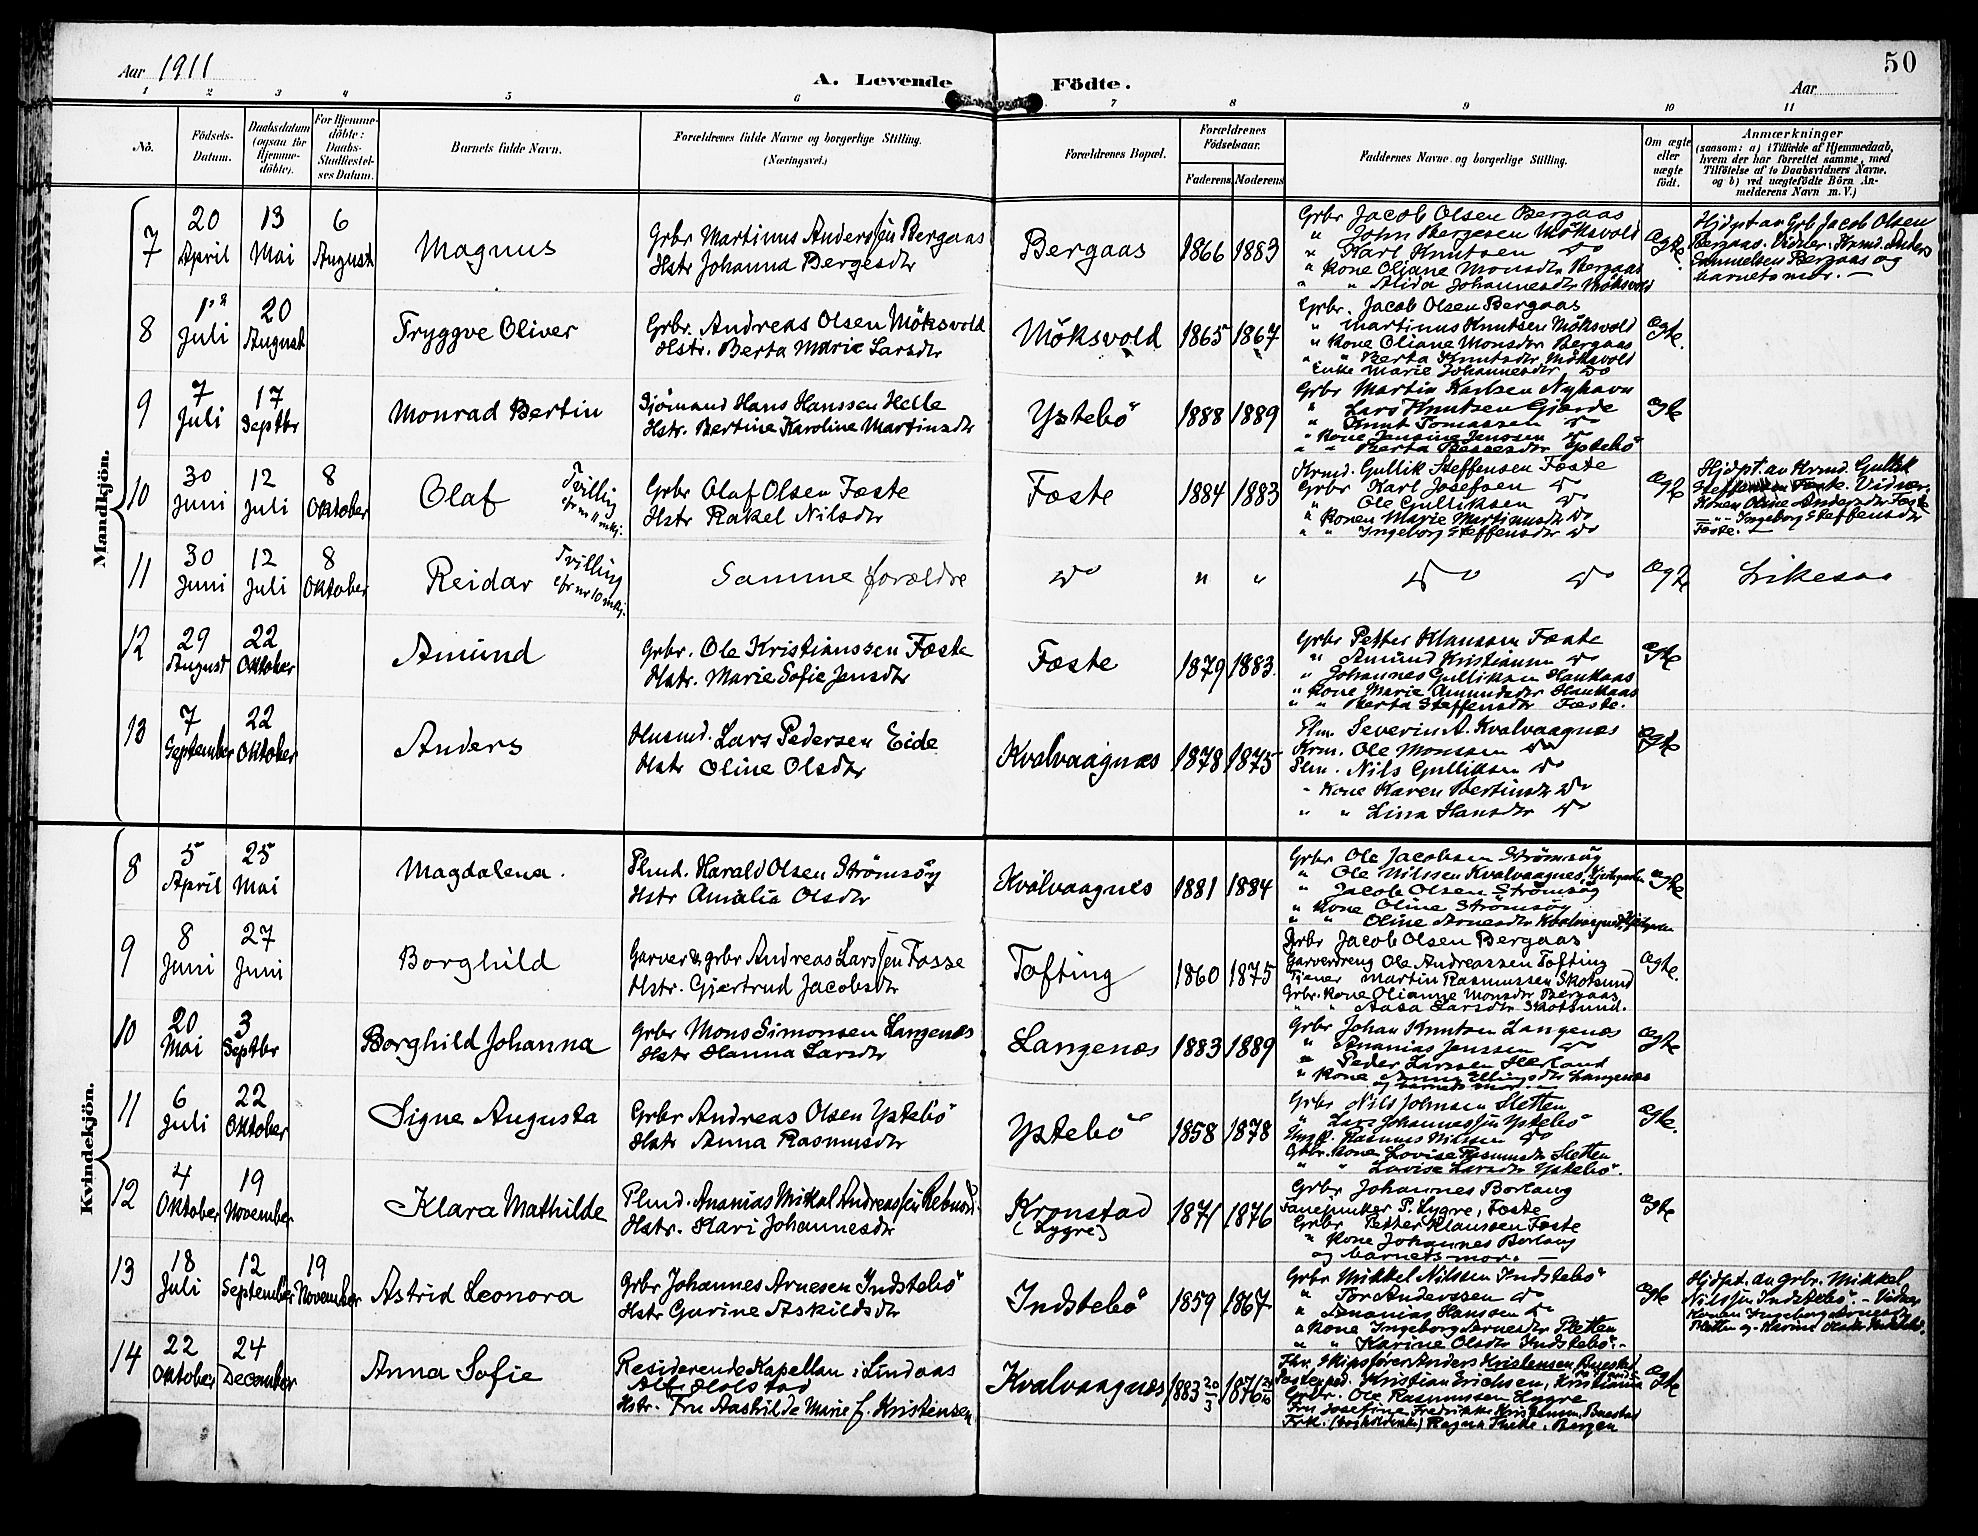 50
Aar 1911
A. Levende Födte.
Aar
1 2 3 4 5 6 7 8 9 10 11
No.
Födsels-
Datum.
Daabsdatum
(ogsaa for
Hjemme-
döbte).
For Hjemme-
döbte:
Daabs-
Stadfæstel-
ses Datum.
Barnets fulde Navn.
Forældrenes fulde Navne og borgerlige Stilling.
(Næringsvei.)
Forældrenes Bopæl.
Forældrenes
Födselsaar.
Faderens Moderens
Faddernes Navne og borgerlige Stilling.
Om ægte
eller
uægte
födt.
Anmærkninger
(saasom: a) i Tilfælde af Hjemmedaab,
hvem der har forrettet samme, med
Tilföielse af to Daabsvidners Navne,
og b) ved uægtefödte Börn An-
melderens Navn m. V.)
Mandkjön.
7
20
April
13
Mai
6
August
Magnus
Grbr Martinus Anderssen Bergaas
Hstr Johanna Bergesdtr
Bergaas
1866 1883
Grbr Jacob Olsen Bergaas
" John Bergesen Möksvold
" Karl Knutsen do
" Kone Oliane Monsdtr Bergaas
" " Alida Johannesdtr Möksvold
Ægte.
Hjdpt av Grb Jacob Olsen
Bergaas. Vidner: Krmd. Anders
Samuelsen Bergaas og
barnets mor. —
8
Juli
20
August
Tryggve Oliver
Grbr. Andreas Olsen Möksvold
Hstr. Berta Marie Larsdtr
Möksvold
1865 1867
Grbr. Jacob Olsen Bergaas
" Martinus Knutsen Möksvold
" Kone Oliane Monsdtr Bergaas
" " Berta Knutsdtr Möksvold
Enke Marie Johannesdtr do
Ægte.
9
7
Juli
17
Septbr
Monrad Bertin
Sjömand Hans Hanssen Helle
Hstr. Bertine Karoline Martinsdtr
Ystebö
1888 1889
Grbr Martin Karlsen Nyhavn
" Lars Knutsen Gjerde
" Knut Tomassen do
" Kone Jensine Jenssen do
" " Berta Bessesdtr Ystebö
Ægte
10
30
Juni
12
Juli
8
Oktober
Olaf
Tvilling
cfr nr 11 mkj.
Grbr Olaf Olsen Fæste
Hstr Rakel Nilsdtr
Fæste
1884 1883
Krmd. Gullik Steffensen Fæste
Grbr Karl Josefsen do
" Ole Gulliksen do
" Konen Marie Martinusdtr do
" " Ingeborg Steffensdtr do
Ægte
Hjdpt. av Krmd. Gullik
Steffensen Fæste. Vidner:
Konen Oline Andersdtr Fæste
" Ingeborg Steffensdtr
Fæste. —
11
30
Juni
12
Juli
8
Oktober
Reidar
Tvilling
cfr nr 10 mkj.
Samme forældre
do
" "
do do
Ægte
Likesaa
12
29
August
22
Oktober
Amund
Grbr. Ole Kristianssen Fæste
Hstr. Marie Sofie Jensdtr
Fæste
1879 1883.
Grbr Petter Klaussen Fæste
" Amund Kristiansen do
" Johannes Gulliksen Haukaas
" Kone Marie Amundsdtr Haukaas
" " Berta Steffensdtr Fæste.
Ægte
13
7
September
22
Oktober
Anders
Husmd. Lars Pedersen Eide
Hstr Oline Olsdtr
Kvalvaagnæs
1878 1875
Plm. Severin A. Kvalvaagnæs
Krm. Ole Monsen do
Plm. Nils Gulliksen do
" Kone Karen Bertinsdtr do
" " Lina Hansdtr do
Ægte
Kvindekjön.
8
5
April
25
Mai
Magdalena.
Plmd. Harald Olsen Strömsöy
Hstr Amalia Olsdtr
Kvalvaagnes
1881 1884
Grbr Ole Jacobsen Strömsöy
" Ole Nilssen Kvalvaagnes,
" Jacob Olsen Strömsöy
" Kone Oline Strömsöy
" " Oline Arnesdtr Kvalvaagnes
Ægte
9
8
Juni
27
Juni
Borghild
Garver & grbr Andreas Larssen Fosse
Hstr. Gjertrud Jacobsdtr
Tofting
1860 1875
Grbr Jacob Olsen Bergaas
Garverdreng Ole Andreassen Tofting
Tjener Martin Rasmussen Skotsund
Grbr. Kone Olianne Monsdtr Bergaas
" " Aasa Larsdtr Skotsund.
Ægte.
10
20
Mai
3
Septbr
Borghild Johanna
Grbr Mons Simonsen Langenæs
Hstr Hanna Larsdtr
Langenæs
1883 1889
Grbr Johan Knutsen Langenæs
" Ananias Jenssen do
" Peder Larssen Herland
" Kone Anna Ellingsdtr Langenæs
og barnets mor. —
Ægte
11
6
Juli
22
Oktober
Signe Augusta
Grbr Andreas Olsen Ystebö
Hstr Anna Rasmusdtr
Ystebö
1858 1878
Grbr Nils Johnsen Sletten
" Lars Johannessen Ystebö
Ungk. Rasmus Nilssen do
Grbr. Kone Lovise Rasmusdtr Sletten
" " Lovise Larsdtr Ystebö.
Ægte.
12
4
Oktober
19
November
Klara Mathilde
Plmd. Ananias Mikal Andreassen Rebnord.
Hstr. Kari Johannesdtr
Kronstad
(Lygre)
1871 1876
Grbr Johannes Borlaug
Fanejunker P. Lygre, Fæste
Grbr. Petter Klaussen Fæste
" Kone Johannes Borlaug
og barnets mor. —
Ægte
13
18
Juli
12
September
19
November
Astrid Leonora
Grbr Johannes Arnesen Indstebö
Hstr Gurine Askildsdtr
Indstebö
1859 1867
Grbr Mikkel Nilssen Indstebö
" Tor Anderssen do
" Ananias Hanssen do
" Kone Ingeborg Arnesdtr Sletten
" " Karine Olsdtr Indstebö.
Ægte
Hjdpt. av grbr. Mikkel
Nilssen Indstebö. — Vidner
Konen Ingeborg Arnesdtr
Sletten og Karine Olsdtr Indstebö.
14
22
Oktober
24
December
Anna Sofie
Residerende Kapellan i Lindaas
Alf Holstad
Hstr. Fru Aashilde Marie f. Kristensen
Kvalvaagnæs
1883 20/3 1876
Fhv. Skipsförer Anders Kristensen
Kristian Erichsen, Kristiania
Grbr. Ole Rasmussen Lygre
Fru Josefine Fredrikke Kristensen
Frk. Ragna Bergen
Ægte